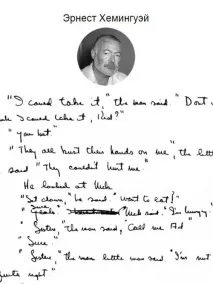 Эрнест Хемингуэй
"I could take it," the man said. "Don't
I could take it, kid?"
"You bet."
"They all bust their hands on me," the little
said. "They couldn't hurt me."
He looked at Nick.
"Sit down," he said. "Want to eat?"
"Sure." Nick said. "I'm hungry."
"Listen," the man said, "Call me Ad."
"Sure."
"Listen," the little man said. "I'm not
quite right."